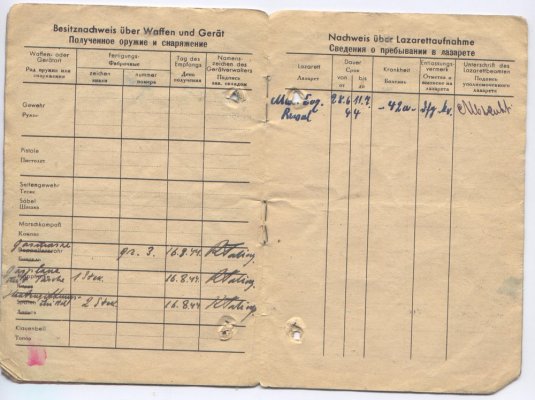 Besitznachweis über Waffen und Gerät
Полученное оружие и снаряжение
Waffen- oder Gerätart
Род оружия или снаряжения
Fertigungs-
Фабричные
zeichen
знаки
nummer
номера
Tag des Empfangs
День получения
Namenszeichen des Geräteverwalters
Подпись зав. складом
Gewehr
Ружье
Pistole
Пистолет
Seitengewehr
Тесак
Säbel
Шашка
Marschkompaß
Компас
Gasmaske
gr. 3.
16.8.44.
Gasplane
1 Stck.
16.8.44.
2 Stck.
16.8.44
Klauenbeil
Топор
Nachweis über Lazarettaufnahme
Сведения о пребывании в лазарете
Lazarett
Лазарет
Dauer
Срок
von
от
bis
до
Krankheit
Болезнь
Entlassungsvermerk
Отметка о выписке из лазарета
Unterschrift des Lazarettbeamten
Подпись уполномоченного лазарета
28.6
11.7.
44